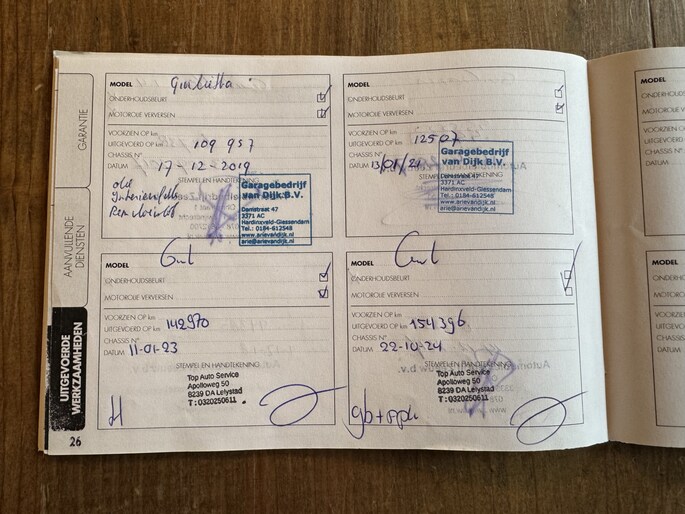 GARANTIE
AANVULLENDE
DIENSTEN
UITGEVOERDE
WERKZAAMHEDEN
26
MODEL Giulietta
ONDERHOUDSBEURT
MOTOROLIE VERVERSEN
VOORZIEN OP km
UITGEVOERD OP km 109 957
CHASSIS N°
DATUM 17-12-2019
STEMPEL EN HANDTEKENING
olie
Interieurfilter
Remvloeistof
Garagebedrijf
van Dijk B.V.
Damstraat 47
3371 AC
Hardinxveld-Giessendam
Tel.: 0184-612548
www.arievandijk.nl
arie@arievandijk.nl
MODEL
ONDERHOUDSBEURT
MOTOROLIE VERVERSEN
VOORZIEN OP km
UITGEVOERD OP km 12507
CHASSIS N°
DATUM
STEMPEL EN HANDTEKENING
Garagebedrijf
van Dijk B.V.
Damstraat 47
3371 AC
Hardinxveld-Giessendam
Tel.: 0184-612548
www.arievandijk.nl
arie@arievandijk.nl
MODEL
ONDERHOUDSBEURT
MOTOROLIE VERVERSEN
VOORZIEN OP km
UITGEVOERD OP km 142970
CHASSIS N°
DATUM 11-01-23
STEMPEL EN HANDTEKENING
Top Auto Service
Apolloweg 50
8239 DA Lelystad
T : 0320250611
MODEL
ONDERHOUDSBEURT
MOTOROLIE VERVERSEN
VOORZIEN OP km
UITGEVOERD OP km 154396
CHASSIS N°
DATUM 22-10-24
STEMPEL EN HANDTEKENING
Top Auto Service
Apolloweg 50
8239 DA Lelystad
T : 0320250611
MODEL
ONDERH
MOTORO
VOORZIE
UITGEVOE
CHASSIS
DATUM
MODEL
ONDERH
MOTORO
VOORZIE
UITGEVOE
CHASSIS
DATUM